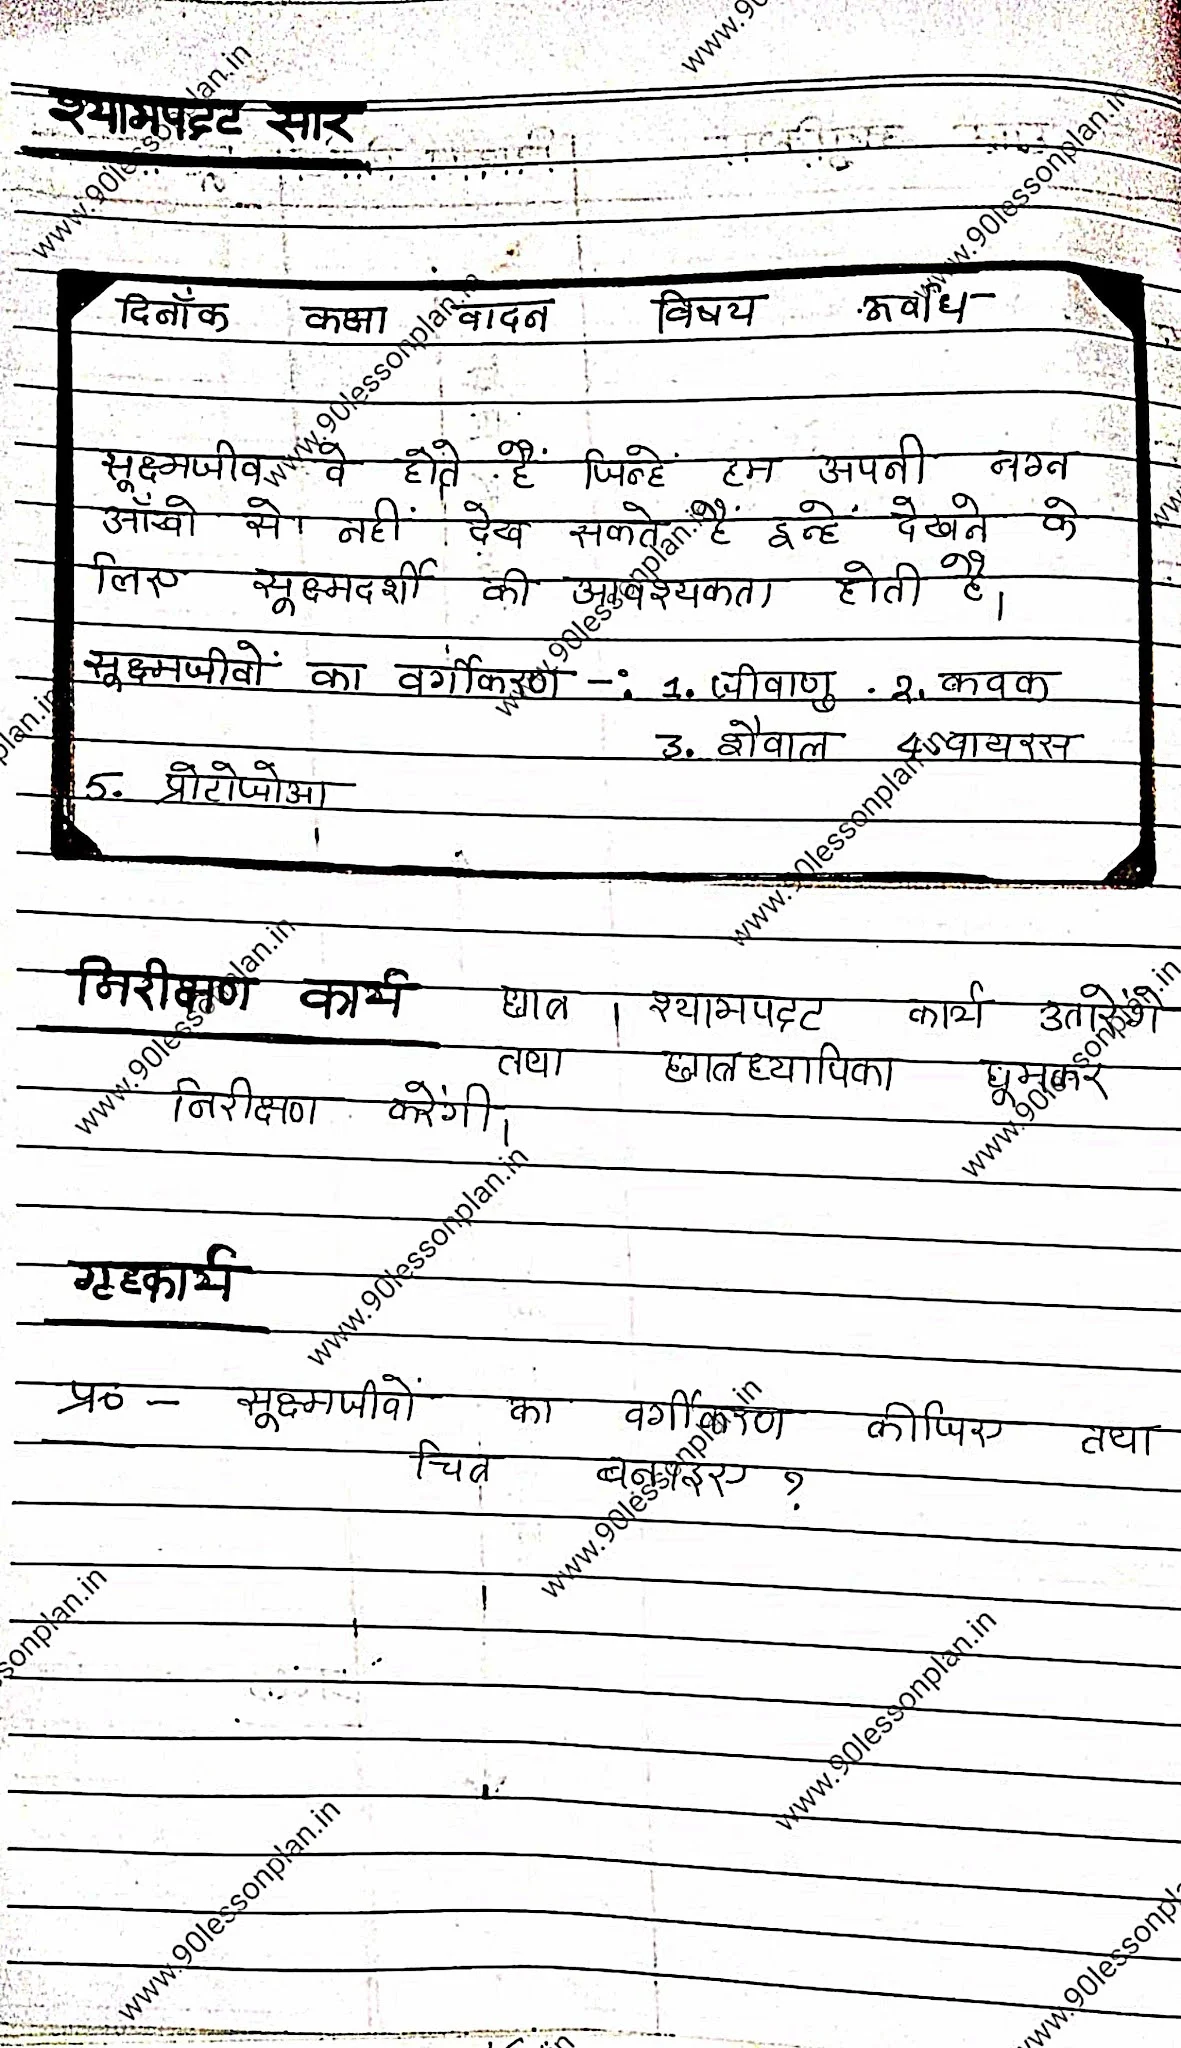 श्यामपट्ट सार
दिनाँक कक्षा वादन विषय
सूक्ष्मजीव वे होते हैं जिन्हें हम अपनी नग्न
आँखो से नहीं देख सकते हैं इन्हें देखने के
लिए सूक्ष्मदर्शी की आवश्यकता होती है।
सूक्ष्मजीवों का वर्गीकरण -: 1. जीवाणु . 2. कवक
3. शैवाल 4. वायरस
5. प्रोटोजोआ
निरीक्षण कार्य छात्र श्यामपट्ट कार्य उतारेंगे
तथा छात्रध्यापिका घूमकर
निरीक्षण करेंगी।
गृहकार्य
प्र० – सूक्ष्मजीवों का वर्गीकरण कीजिए तथा
चित्र बनाइए ?
www.90lessonplan.in